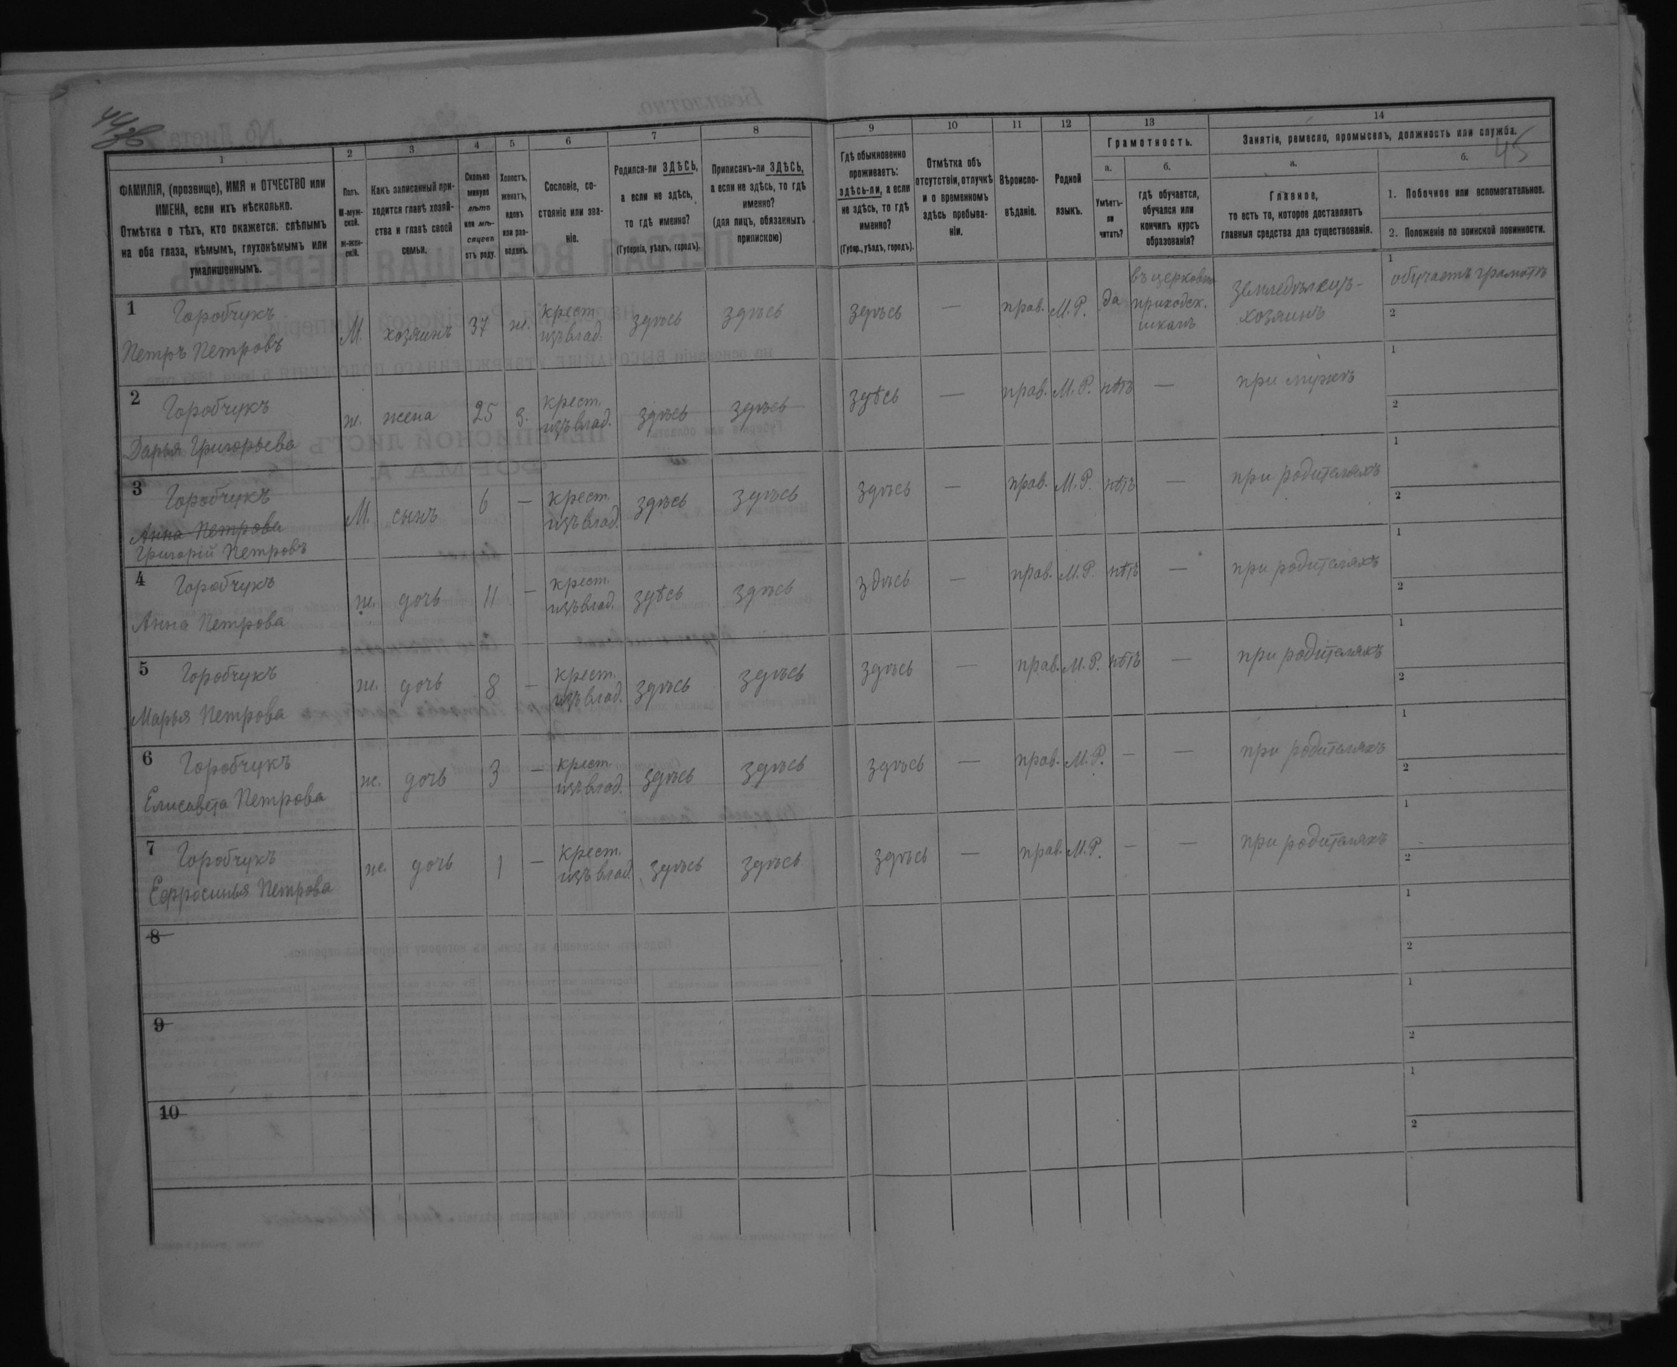 45
1 2 3 4 5 6 7 8 9 10 11 12 13 14
ФАМИЛІЯ, (прозвище), ИМЯ и ОТЧЕСТВО или ИМЕНА, если ихъ нѣсколько.
Отмѣтка о тѣхъ, кто окажется: слѣпымъ на оба глаза, нѣмымъ, глухонѣмымъ или умалишеннымъ.
Полъ. М-муж-ской. Ж-жен-скій.
Какъ записанный при-ходится главѣ хозяй-ства и главѣ своей семьи.
Сколько минуло лѣтъ или мѣ-сяцевъ отъ роду.
Холостъ, женатъ, вдовъ или раз-веденъ.
Сословіе, со-стояніе или зва-ніе.
Родился-ли ЗДѢСЬ, а если не здѣсь, то гдѣ именно?
(Губернія, уѣздъ, городъ).
Приписанъ-ли ЗДѢСЬ, а если не здѣсь, то гдѣ именно?
(для лицъ, обязанныхъ припискою)
Гдѣ обыкновенно проживаетъ: здѣсь-ли, а если не здѣсь, то гдѣ именно?
(Губер., уѣздъ, городъ).
Отмѣтка объ отсутствіи, отлучкѣ и о временномъ здѣсь пребыва-ніи.
Вѣроиспо-вѣданіе.
Родной языкъ.
Грамотность.
а. Умѣетъ-ли читать?
б. гдѣ обучается, обучался или кончилъ курсъ образованія?
Занятіе, ремесло, промыселъ, должность или служба.
а. Главное, то есть то, которое доставляетъ главныя средства для существованія.
б. 1. Побочное или вспомогательное.
2. Положеніе по воинской повинности.
1 Горобчукъ Петръ Петровъ М. хозяинъ 37 ж. крест. изъ влад. здѣсь здѣсь здѣсь — прав. М.Р. да въ церковно приходск. школѣ земледѣлецъ-хозяинъ 1 обучаетъ грамотѣ 2
2 Горобчукъ Дарья Григорьева ж. жена 25 з. крест. изъ влад. здѣсь здѣсь здѣсь — прав. М.Р. нѣтъ — при мужѣ 1 2
3 Горобчукъ Анна Петрова Григорій Петровъ М. сынъ 6 — крест. изъ влад. здѣсь здѣсь здѣсь — прав. М.Р. нѣтъ — при родителяхъ 1 2
4 Горобчукъ Анна Петрова ж. дочь 11 — крест. изъ влад. здѣсь здѣсь здѣсь — прав. М.Р. нѣтъ — при родителяхъ 1 2
5 Горобчукъ Марья Петрова ж. дочь 8 — крест. изъ влад. здѣсь здѣсь здѣсь — прав. М.Р. нѣтъ — при родителяхъ 1 2
6 Горобчукъ Елисавета Петрова ж. дочь 3 — крест. изъ влад. здѣсь здѣсь здѣсь — прав. М.Р. — — при родителяхъ 1 2
7 Горобчукъ Ефросинья Петрова ж. дочь 1 — крест. изъ влад. здѣсь здѣсь здѣсь — прав. М.Р. — — при родителяхъ 1 2
8 1 2
9 1 2
10 1 2